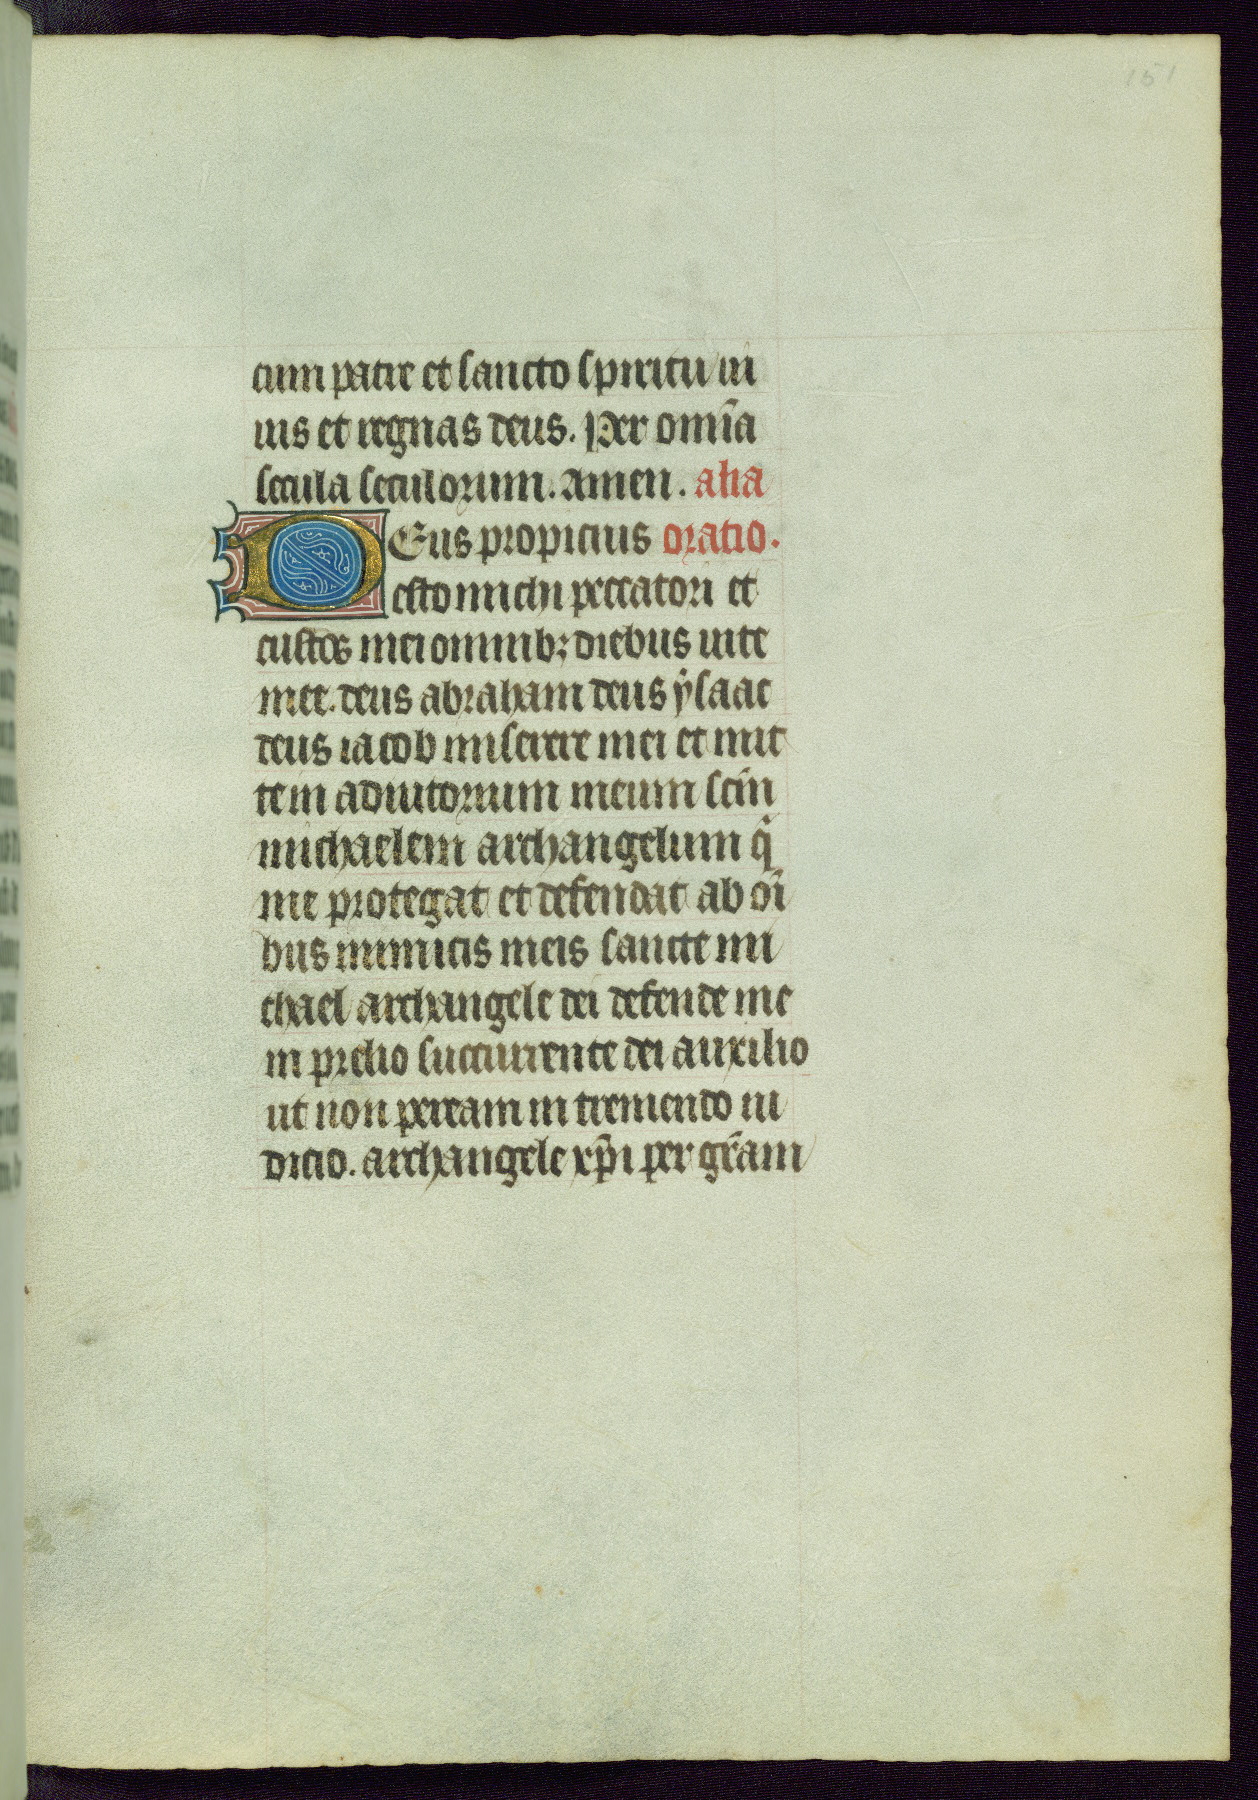 151
cum patre et sancto spiritu ui
uis et regnas deus. Per omīa
secula seculorum. amen. alia
DEus propicius oratio.
esto michi peccatori et
custos mei omnibꝫ diebus uite
mee. deus abraham deus ẏsaac
deus iacob miserere mei et mit
te in adiutorium meum scm̄
michaelem archangelum qͥ
me protegat et defendat ab oī
bus inimicis meis sancte mi
chael archangele dei defende me
in prelio succurrente dei auxilio
ut non peream in tremendo iu
dicio. archangele xp̄i per gr̄am